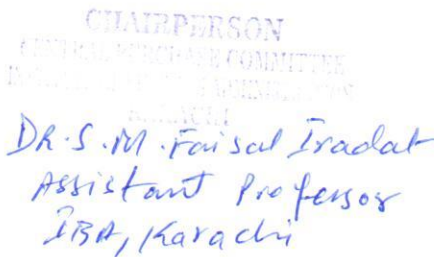 CHAIRPERSON
CENTRAL PURCHASE COMMITTEE
KARACHI
DR. S. M. Faisal Iradat
Assistant Professor
IBA, Karachi